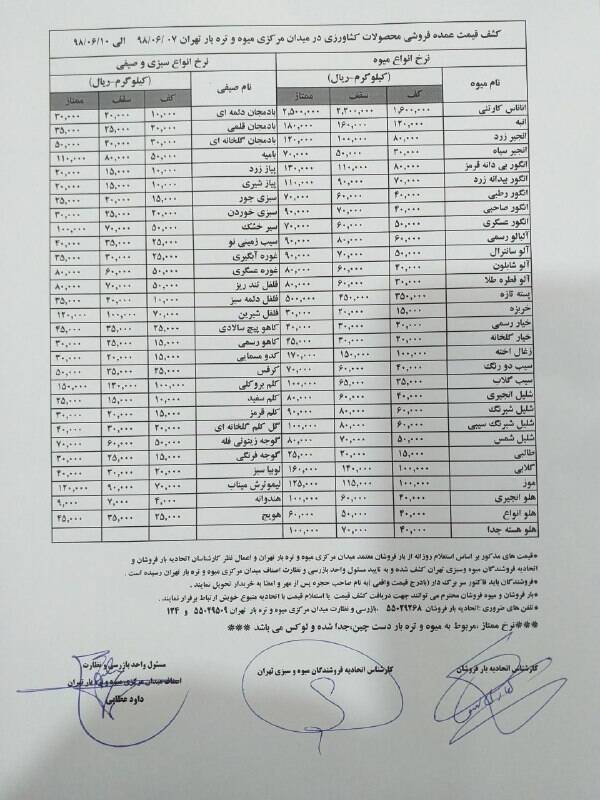 کشف قیمت عمده فروشی محصولات کشاورزی در میدان مرکزی میوه و تره بار تهران ۹۸/۰۶/۰۷ الی ۹۸/۰۶/۱۰
نرخ انواع میوه نرخ انواع سبزی و صیفی
نام میوه (کیلوگرم-ریال) نام صیفی (کیلوگرم-ریال)
کف سقف ممتاز کف سقف ممتاز
آناناس کارتنی ۱,۶۰۰,۰۰۰ ۲,۲۰۰,۰۰۰ ۲,۵۰۰,۰۰۰ بادمجان دلمه ای ۱۰,۰۰۰ ۲۰,۰۰۰ ۳۰,۰۰۰
انبه ۱۲۰,۰۰۰ ۱۶۰,۰۰۰ ۱۸۰,۰۰۰ بادمجان قلمی ۲۰,۰۰۰ ۲۵,۰۰۰ ۳۵,۰۰۰
انجیر زرد ۸۰,۰۰۰ ۱۰۰,۰۰۰ ۱۲۰,۰۰۰ بادمجان گلخانه ای ۳۰,۰۰۰ ۴۰,۰۰۰ ۵۰,۰۰۰
انجیر سیاه ۳۰,۰۰۰ ۵۰,۰۰۰ ۷۰,۰۰۰ بامیه ۵۰,۰۰۰ ۸۰,۰۰۰ ۱۱۰,۰۰۰
انگور بی دانه قرمز ۸۰,۰۰۰ ۱۱۰,۰۰۰ ۱۳۰,۰۰۰ پیاز زرد ۱۰,۰۰۰ ۱۵,۰۰۰ ۲۰,۰۰۰
انگور بیدانه زرد ۷۰,۰۰۰ ۹۰,۰۰۰ ۱۱۰,۰۰۰ پیاز شیری ۱۰,۰۰۰ ۱۵,۰۰۰ ۲۰,۰۰۰
انگور رطبی ۴۰,۰۰۰ ۶۰,۰۰۰ ۷۰,۰۰۰ سبزی جور ۱۵,۰۰۰ ۲۰,۰۰۰ ۲۵,۰۰۰
انگور صاحبی ۴۰,۰۰۰ ۷۰,۰۰۰ ۹۰,۰۰۰ سبزی خوردن ۲۰,۰۰۰ ۲۵,۰۰۰ ۳۰,۰۰۰
انگور عسکری ۵۰,۰۰۰ ۶۰,۰۰۰ ۷۰,۰۰۰ سیر خشک ۵۰,۰۰۰ ۷۰,۰۰۰ ۱۰۰,۰۰۰
آلبالو رسمی ۶۰,۰۰۰ ۸۰,۰۰۰ ۹۰,۰۰۰ سیب زمینی نو ۲۵,۰۰۰ ۳۵,۰۰۰ ۴۰,۰۰۰
آلو سانترال ۵۰,۰۰۰ ۷۰,۰۰۰ ۹۰,۰۰۰ غوره آبگیری ۲۵,۰۰۰ ۳۰,۰۰۰ ۳۵,۰۰۰
آلو شابلون ۴۰,۰۰۰ ۶۰,۰۰۰ ۸۰,۰۰۰ غوره عسگری ۵۰,۰۰۰ ۶۰,۰۰۰ ۸۰,۰۰۰
آلو قطره طلا ۴۰,۰۰۰ ۶۰,۰۰۰ ۸۰,۰۰۰ فلفل تند ریز ۵۰,۰۰۰ ۷۰,۰۰۰ ۸۰,۰۰۰
پسته تازه ۳۵۰,۰۰۰ ۴۵۰,۰۰۰ ۵۰۰,۰۰۰ فلفل دلمه سبز ۱۰,۰۰۰ ۲۰,۰۰۰ ۳۵,۰۰۰
خربزه ۱۵,۰۰۰ ۲۰,۰۰۰ ۳۰,۰۰۰ فلفل شیرین ۷۰,۰۰۰ ۱۰۰,۰۰۰ ۱۲۰,۰۰۰
خیار رسمی ۲۰,۰۰۰ ۳۰,۰۰۰ ۴۰,۰۰۰ کاهو پیچ سالادی ۲۵,۰۰۰ ۳۵,۰۰۰ ۴۵,۰۰۰
خیار گلخانه ۲۰,۰۰۰ ۳۰,۰۰۰ ۴۵,۰۰۰ کاهو رسمی ۱۵,۰۰۰ ۲۵,۰۰۰ ۳۰,۰۰۰
زغال اخته ۱۰۰,۰۰۰ ۱۵۰,۰۰۰ ۱۷۰,۰۰۰ کدو مسمایی ۱۵,۰۰۰ ۲۵,۰۰۰ ۳۰,۰۰۰
سیب دو رنگ ۴۰,۰۰۰ ۶۰,۰۰۰ ۷۰,۰۰۰ کرفس ۲۵,۰۰۰ ۳۵,۰۰۰ ۵۰,۰۰۰
سیب گلاب ۳۵,۰۰۰ ۶۵,۰۰۰ ۱۰۰,۰۰۰ کلم بروکلی ۱۰۰,۰۰۰ ۱۳۰,۰۰۰ ۱۵۰,۰۰۰
شلیل انجیری ۴۰,۰۰۰ ۶۰,۰۰۰ ۸۰,۰۰۰ کلم سفید ۱۰,۰۰۰ ۱۵,۰۰۰ ۲۵,۰۰۰
شلیل شبرنگ ۶۰,۰۰۰ ۸۰,۰۰۰ ۹۰,۰۰۰ کلم قرمز ۱۵,۰۰۰ ۲۰,۰۰۰ ۳۰,۰۰۰
شلیل شبرنگ سیبی ۶۰,۰۰۰ ۸۰,۰۰۰ ۱۰۰,۰۰۰ گل کلم گلخانه ای ۲۰,۰۰۰ ۳۰,۰۰۰ ۴۰,۰۰۰
شلیل شمس ۵۰,۰۰۰ ۷۰,۰۰۰ ۸۰,۰۰۰ گوجه زیتونی فله ۵۰,۰۰۰ ۶۰,۰۰۰ ۷۰,۰۰۰
طالبی ۱۵,۰۰۰ ۲۰,۰۰۰ ۲۵,۰۰۰ گوجه فرنگی ۱۵,۰۰۰ ۲۵,۰۰۰ ۳۰,۰۰۰
گلابی ۱۰۰,۰۰۰ ۱۴۰,۰۰۰ ۱۶۰,۰۰۰ لوبیا سبز ۲۰,۰۰۰ ۳۰,۰۰۰ ۴۰,۰۰۰
موز ۱۰۰,۰۰۰ ۱۱۵,۰۰۰ ۱۲۵,۰۰۰ لیموترش میناب ۷۰,۰۰۰ ۹۰,۰۰۰ ۱۲۰,۰۰۰
هلو انجیری ۴۰,۰۰۰ ۶۰,۰۰۰ ۱۰۰,۰۰۰ هندوانه ۴,۰۰۰ ۷,۰۰۰ ۹,۰۰۰
هلو انواع ۲۰,۰۰۰ ۵۰,۰۰۰ ۶۰,۰۰۰ هویج ۲۵,۰۰۰ ۳۵,۰۰۰ ۴۵,۰۰۰
هلو هسته جدا ۴۰,۰۰۰ ۷۰,۰۰۰ ۱۰۰,۰۰۰
*قیمت های مذکور بر اساس استعلام روزانه از بار فروشان معتمد میدان مرکزی میوه و تره بار تهران و اعمال نظر کارشناسان اتحادیه بار فروشان و
اتحادیه فروشندگان میوه وسبزی تهران کشف شده و به تایید مسئول واحد بازرسی و نظارت اصناف میدان مرکزی میوه و تره بار تهران رسیده است .
*فروشندگان باید فاکتور سر برگه دار (بادرج قیمت واقعی )به نام صاحب حجره پس از مهر و امضا به خریدار تحویل نمایند .
*بار فروشان و میوه فروشان محترم می توانند جهت دریافت کشف قیمت یا استعلام قیمت با اتحادیه متبوع خویش ارتباط برقرار نمایند .
*تلفن های ضروری :اتحادیه بار فروشان ۵۵۰۲۹۲۶۸ .بازرسی و نظارت میدان مرکزی میوه و تره بار تهران ۵۵۰۲۹۵۰۹ و ۱۲۴
*** نرخ ممتاز ،مربوط به میوه و تره بار دست چین،جدا شده و لوکس می باشد ***
کارشناس اتحادیه بار فروشان
کارشناس اتحادیه فروشندگان میوه و سبزی تهران
مسئول واحد بازرسی و نظارت
اصناف میدان مرکزی میوه و تره بار تهران
داود عطایی